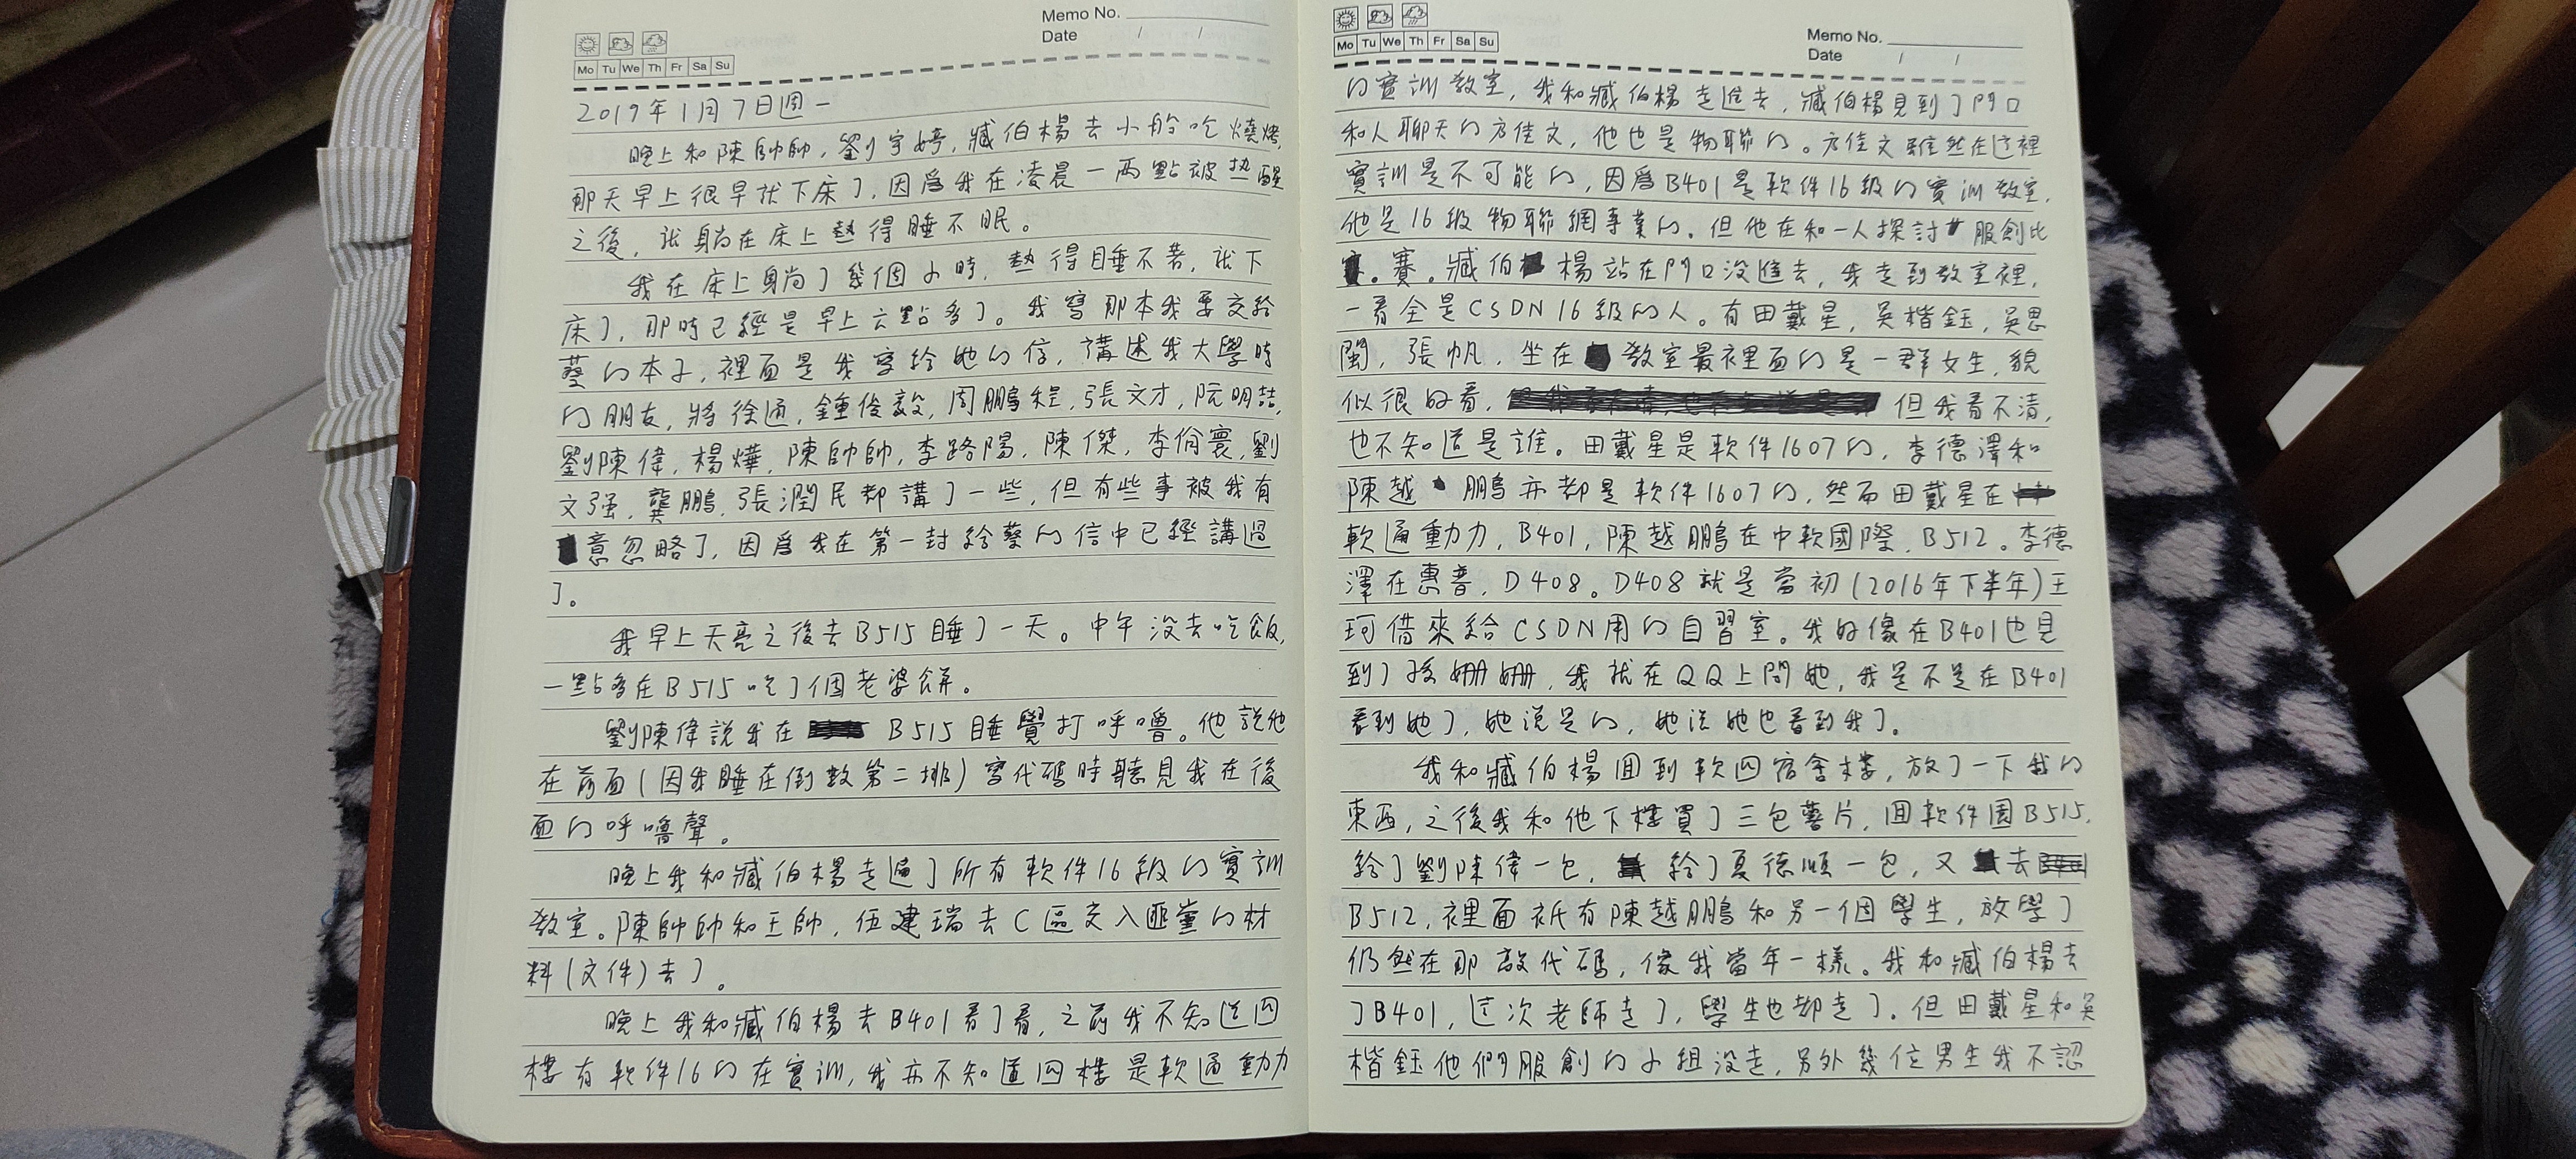 Memo No.
Date / /
Mo Tu We Th Fr Sa Su
2019年1月7日週一
晚上和陳帥帥,劉宇婷,臧伯楊去小船吃燒烤,
那天早上很早就下床了,因爲我在凌晨一兩點被热醒
之後,就躺在床上熱得睡不眠。
我在床上躺了幾個小時,熱得睡不着,就下
床了,那時已經是早上六點多了。我寫那本我要交給
蔡的本子,裡面是我寫給她的信,講述我大學時
的朋友,將徐通,鍾俊毅,周鵬程,張文才,阮明喆,
劉陳偉,楊燁,陳帥帥,李路陽,陳傑,李尙寰,劉
文强,龔鵬,張潤民都講了一些,但有些事被我有
意忽略了,因爲我在第一封給蔡的信中已經講過
了。
我早上天亮之後去B515睡了一天。中午沒去吃飯,
一點多在B515吃了個老婆餅。
劉陳偉說我在 B515睡覺打呼嚕。他說他
在前面(因我睡在倒數第二排)寫代碼時聽見我在後
面的呼嚕聲。
晚上我和臧伯楊走遍了所有軟件16級的實訓
教室。陳帥帥和王帥,伍建瑞去C區交入匪黨的材
料(文件)去了。
晚上我和臧伯楊去B401看了看,之前我不知道四
樓有軟件16的在實訓,我亦不知道四樓是軟通動力
Mo Tu We Th Fr Sa Su
Memo No.
Date / /
的實訓教室,我和臧伯楊走進去,臧伯楊見到了門口
和人聊天的方佳文,他也是物聯的。方佳文雖然在这裡
實訓是不可能的,因爲B401是軟件16級的實訓教室,
他是16級物聯網專業的.但他在和一人探討服創比
。賽。臧伯楊站在門口没進去,我走到教室裡,
一看全是CSDN16級的人。有田戴星,吳楷鈺,吳思
閩,張帆.坐在教室最裡面的是一群女生,貌
似很好看, 但我看不清,
也不知道是誰。田戴星是軟件1607的,李德澤和
陳越鵬亦都是軟件1607的,然而田戴星在
軟通重动力,B401,陳越鵬在中軟國際,B512。李德
澤在惠普,D408。D408就是當初(2016年下半年)王
珂借來給CSDN用的自習室。我好像在B401也見
到了孫姍姍,我就在QQ上問她,我是不是在B401
看到她了,她说是的,她说她也看到我了。
我和臧伯楊回到軟四宿舍樓,放了一下我的
東西,之後我和他下樓買了三包薯片,回軟件園B515,
給了劉陳偉一包, 給了夏德順一包,又去
B512,裡面衹有陳越鵬和另一個學生,放學了
仍然在那敲代碼,像我當年一樣。我和臧伯楊去
了B401,这次老師走了,學生也都走了.但田戴星和吳
楷鈺他們服創的小組没走,另外幾位男生我不認